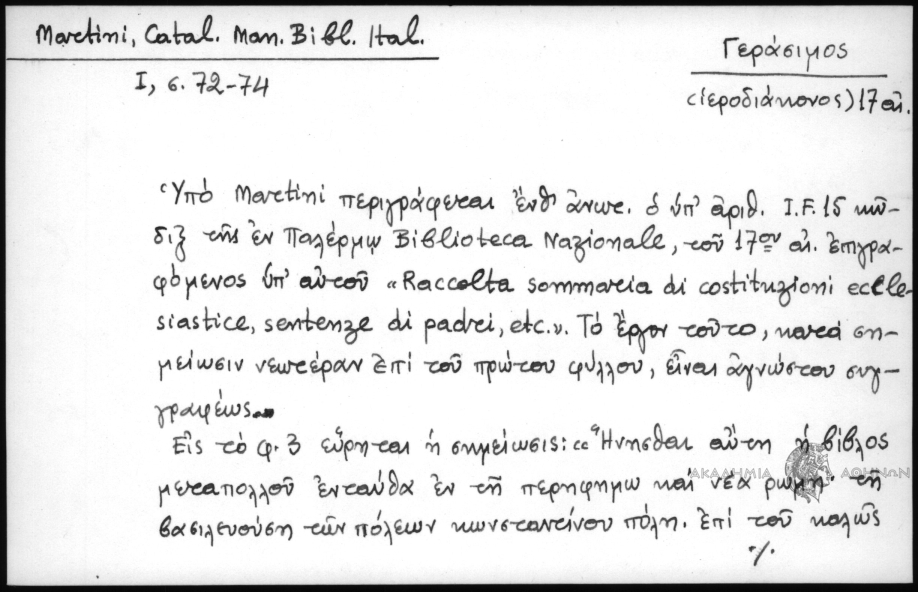 Martini, Catal. Man. Bibl. Ital.
I, σ. 72-74
Γεράσιμος
(ἱεροδιάκονος) 17 αἰ.
Ὑπό Martini περιγράφεται ἔνθ' ἄνωτ. ὁ ὑπ' ἀριθ. I.F. 15 κῶ-
διξ τῆς ἐν Παλέρμῳ Biblioteca Nazionale, τοῦ 17ου αἰ. ἐπιγρα-
φόμενος ὑπ' αὐτοῦ «Raccolta sommaria di costituzioni eccle-
siastice, sentenze di padri, etc.». Τό ἔργον τοῦτο, κατά ση-
μείωσιν νεωτέραν ἐπί τοῦ πρώτου φύλλου, εἶναι ἀγνώστου συγ-
γραφέως.
Εἰς τό φ. 3 εὕρηται ἡ σημείωσις: «Ἠνησθαι αὕτη ἡ βίβλος
μεταπολλοῦ ἐνταύθα ἐν τῆ περηφημω καί νέα ρωμη· τῆ
βασιλευούση τῶν πόλεων κωνσταντίνου πόλη. ἐπί τοῦ καλῶς
·/.
ΑΚΑΔΗΜΙΑ ΑΘΗΝΩΝ